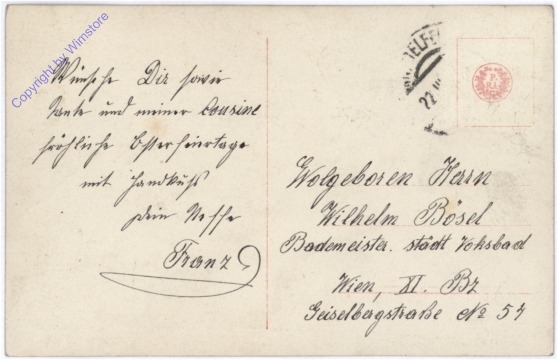 Wünsche Dir sowie
Tante und meiner Cousine
fröhliche Osterfeiertage
mit Handkuss
Dein Neffe
Franz
Wolgeboren Herrn
Wilhelm Bösel
Bademeister. städt Voksbad
Wien, XI. Bz
Geiselbergstraße No 54
22
Copyright by Wimstore